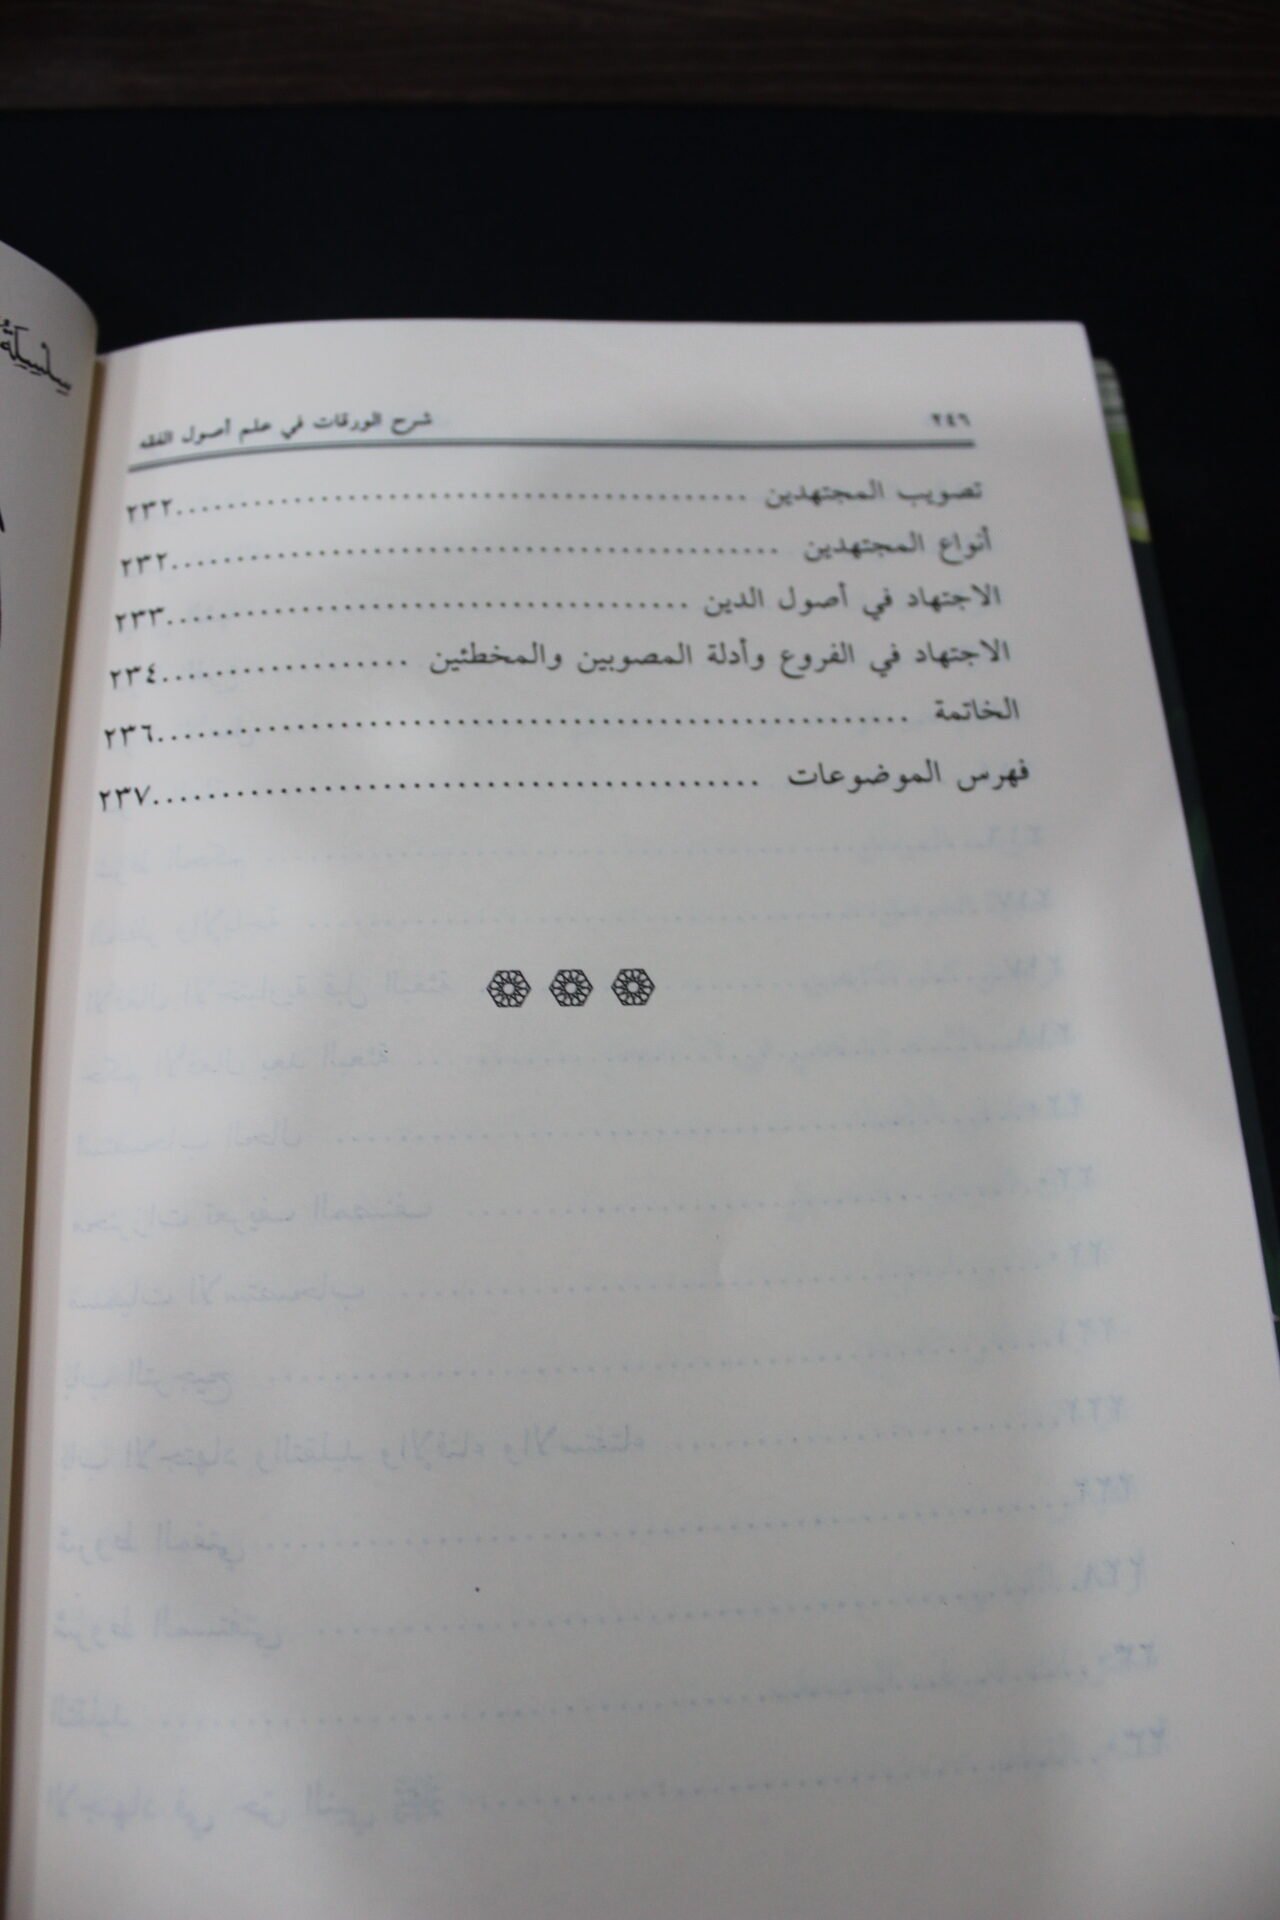 ٢٤٦ شرح الورقات في علم أصول الفقه
تصويب المجتهدين ........................................ ٢٣٢
أنواع المجتهدين ........................................ ٢٣٢
الاجتهاد في أصول الدين ........................................ ٢٣٣
الاجتهاد في الفروع وأدلة المصوبين والمخطئين .................. ٢٣٤
الخاتمة ........................................ ٢٣٦
فهرس الموضوعات ........................................ ٢٣٧
سلسلة